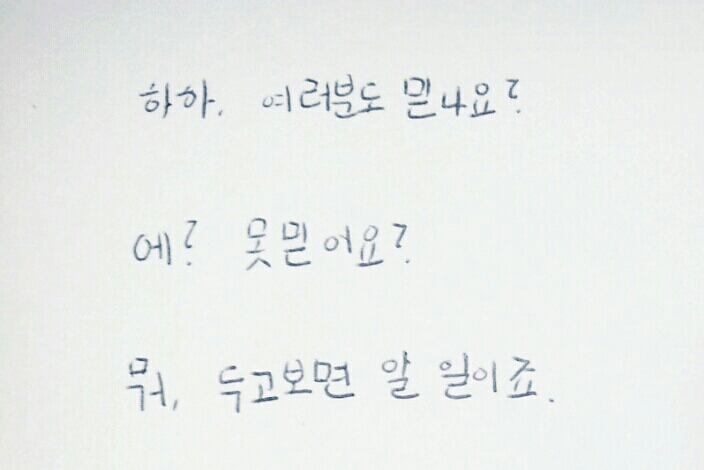 하하. 여러분도 믿나요?
에? 못믿어요?
뭐, 두고보면 알 일이죠.